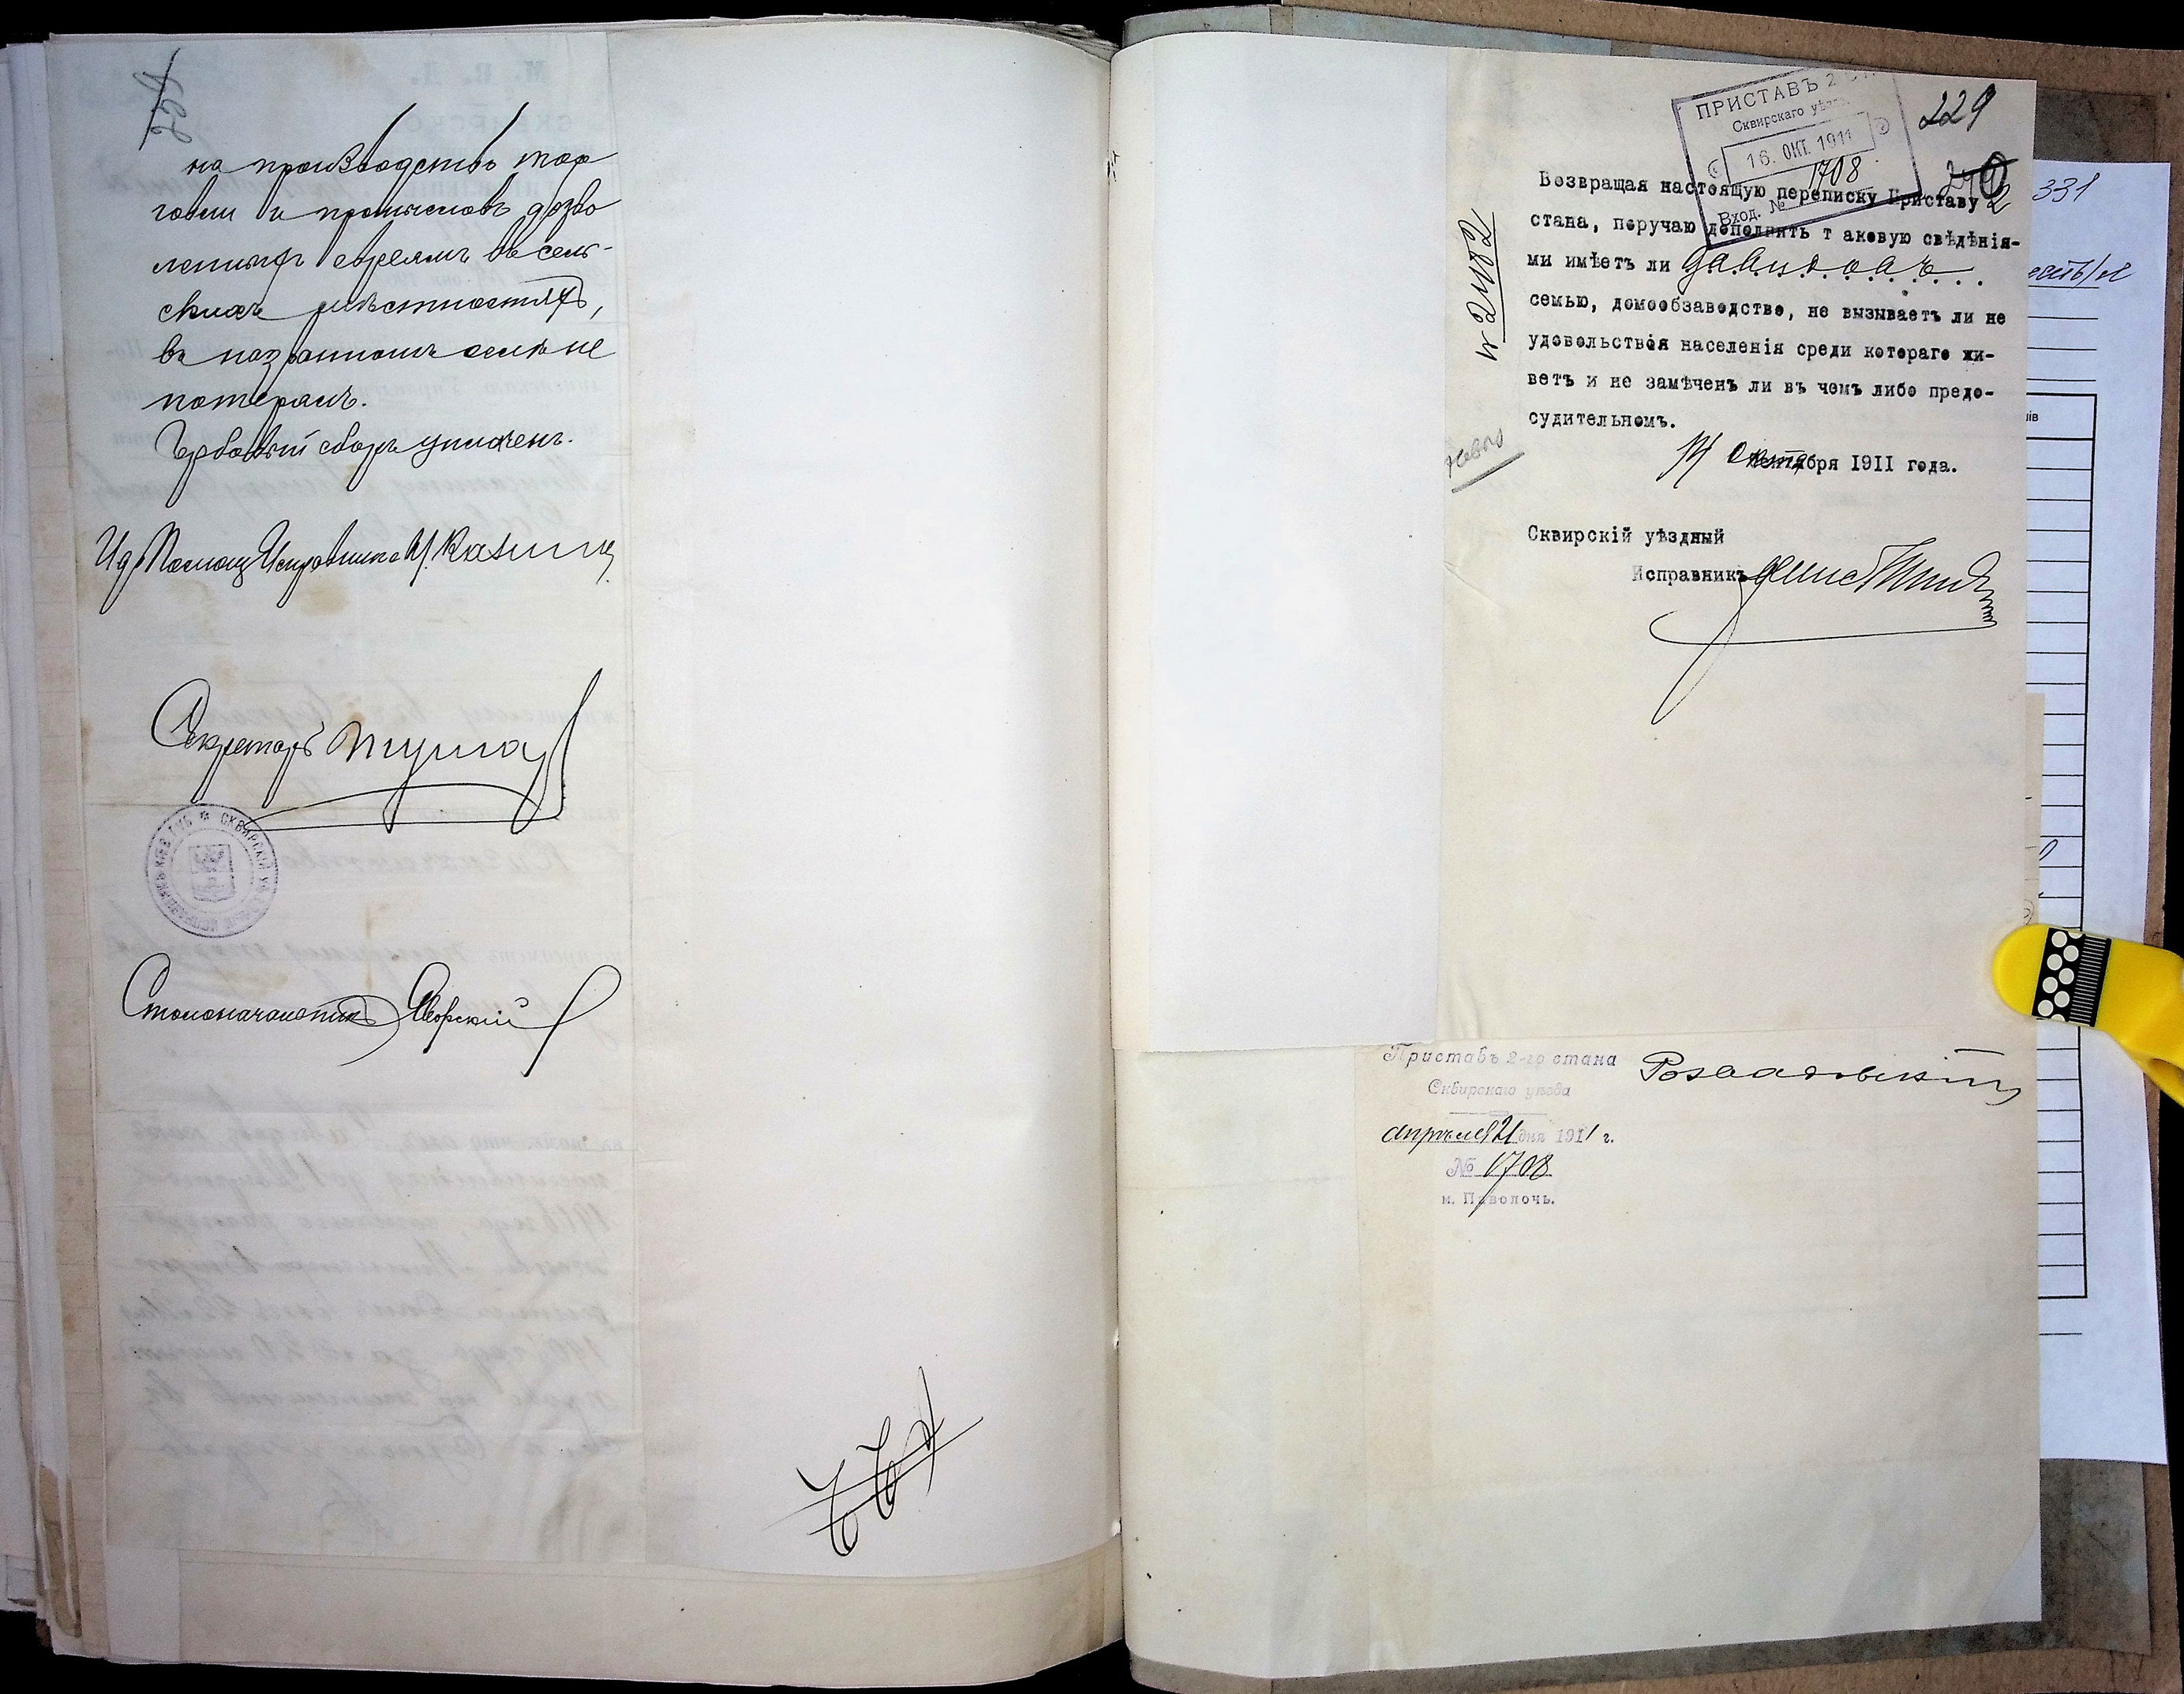 на производство тор
говли и промысловъ дозво
ленныхъ евреямъ въ сель-
скихъ мѣстностяхъ,
въ названномъ селѣ не
потерялъ.
Гербовый сборъ уплаченъ.
Ид. Помощ. Исправника
Секретарь
СКВИРСКІЙ
Столоначальникъ Яворскій
ПРИСТАВЪ 2
Сквирскаго уѣзд.
16. ОКТ. 1911
1708
Вход. №
229
Возвращая настоящую переписку Приставу 2
стана, поручаю дополнить т аковую свѣдѣнія-
ми имѣетъ ли Давидовъ
семью, домообзаводство, не вызываетъ ли не
удовольствія населенія среди котораго жи-
ветъ и не замѣченъ ли въ чемъ либо предо-
судительномъ.
14 Октября 1911 года.
Сквирскій уѣздный
Исправникъ
№ 21182
Приставъ 2-го стана
Сквирскаго уѣзда
апрѣля 21 дня 1911 г.
№ 1708
м. Паволочь.
331